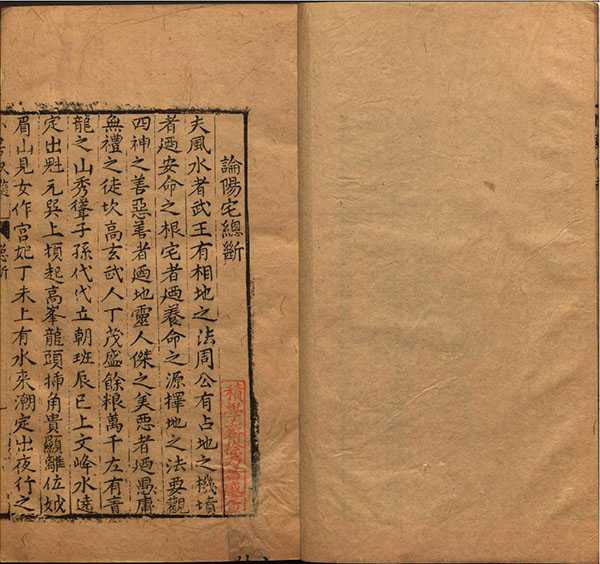 論陽宅總斷
夫風水者武王有相地之法周公有占地之機墳
者廼安命之根宅者廼養命之源擇地之法要觀
四神之善惡善者廼地靈人傑之美惡者廼愚庸
無禮之徒坎高玄武人丁茂盛餘粮萬千左有青
龍之山秀聳子孫代代立朝班辰巳上文峰水遠
定出魁元巽上塤起高峯龍頭揷角貴顯離位娥
眉山見女作宮妃丁未上有水來潮定出夜行之
總斷